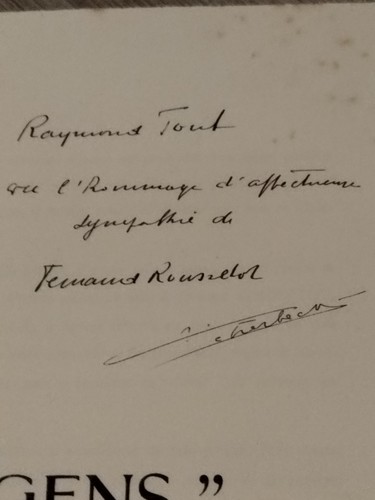 Raymond Tout
l'hommage d'affectueuse
sympathie de
Fernand Rousselot
GENS"